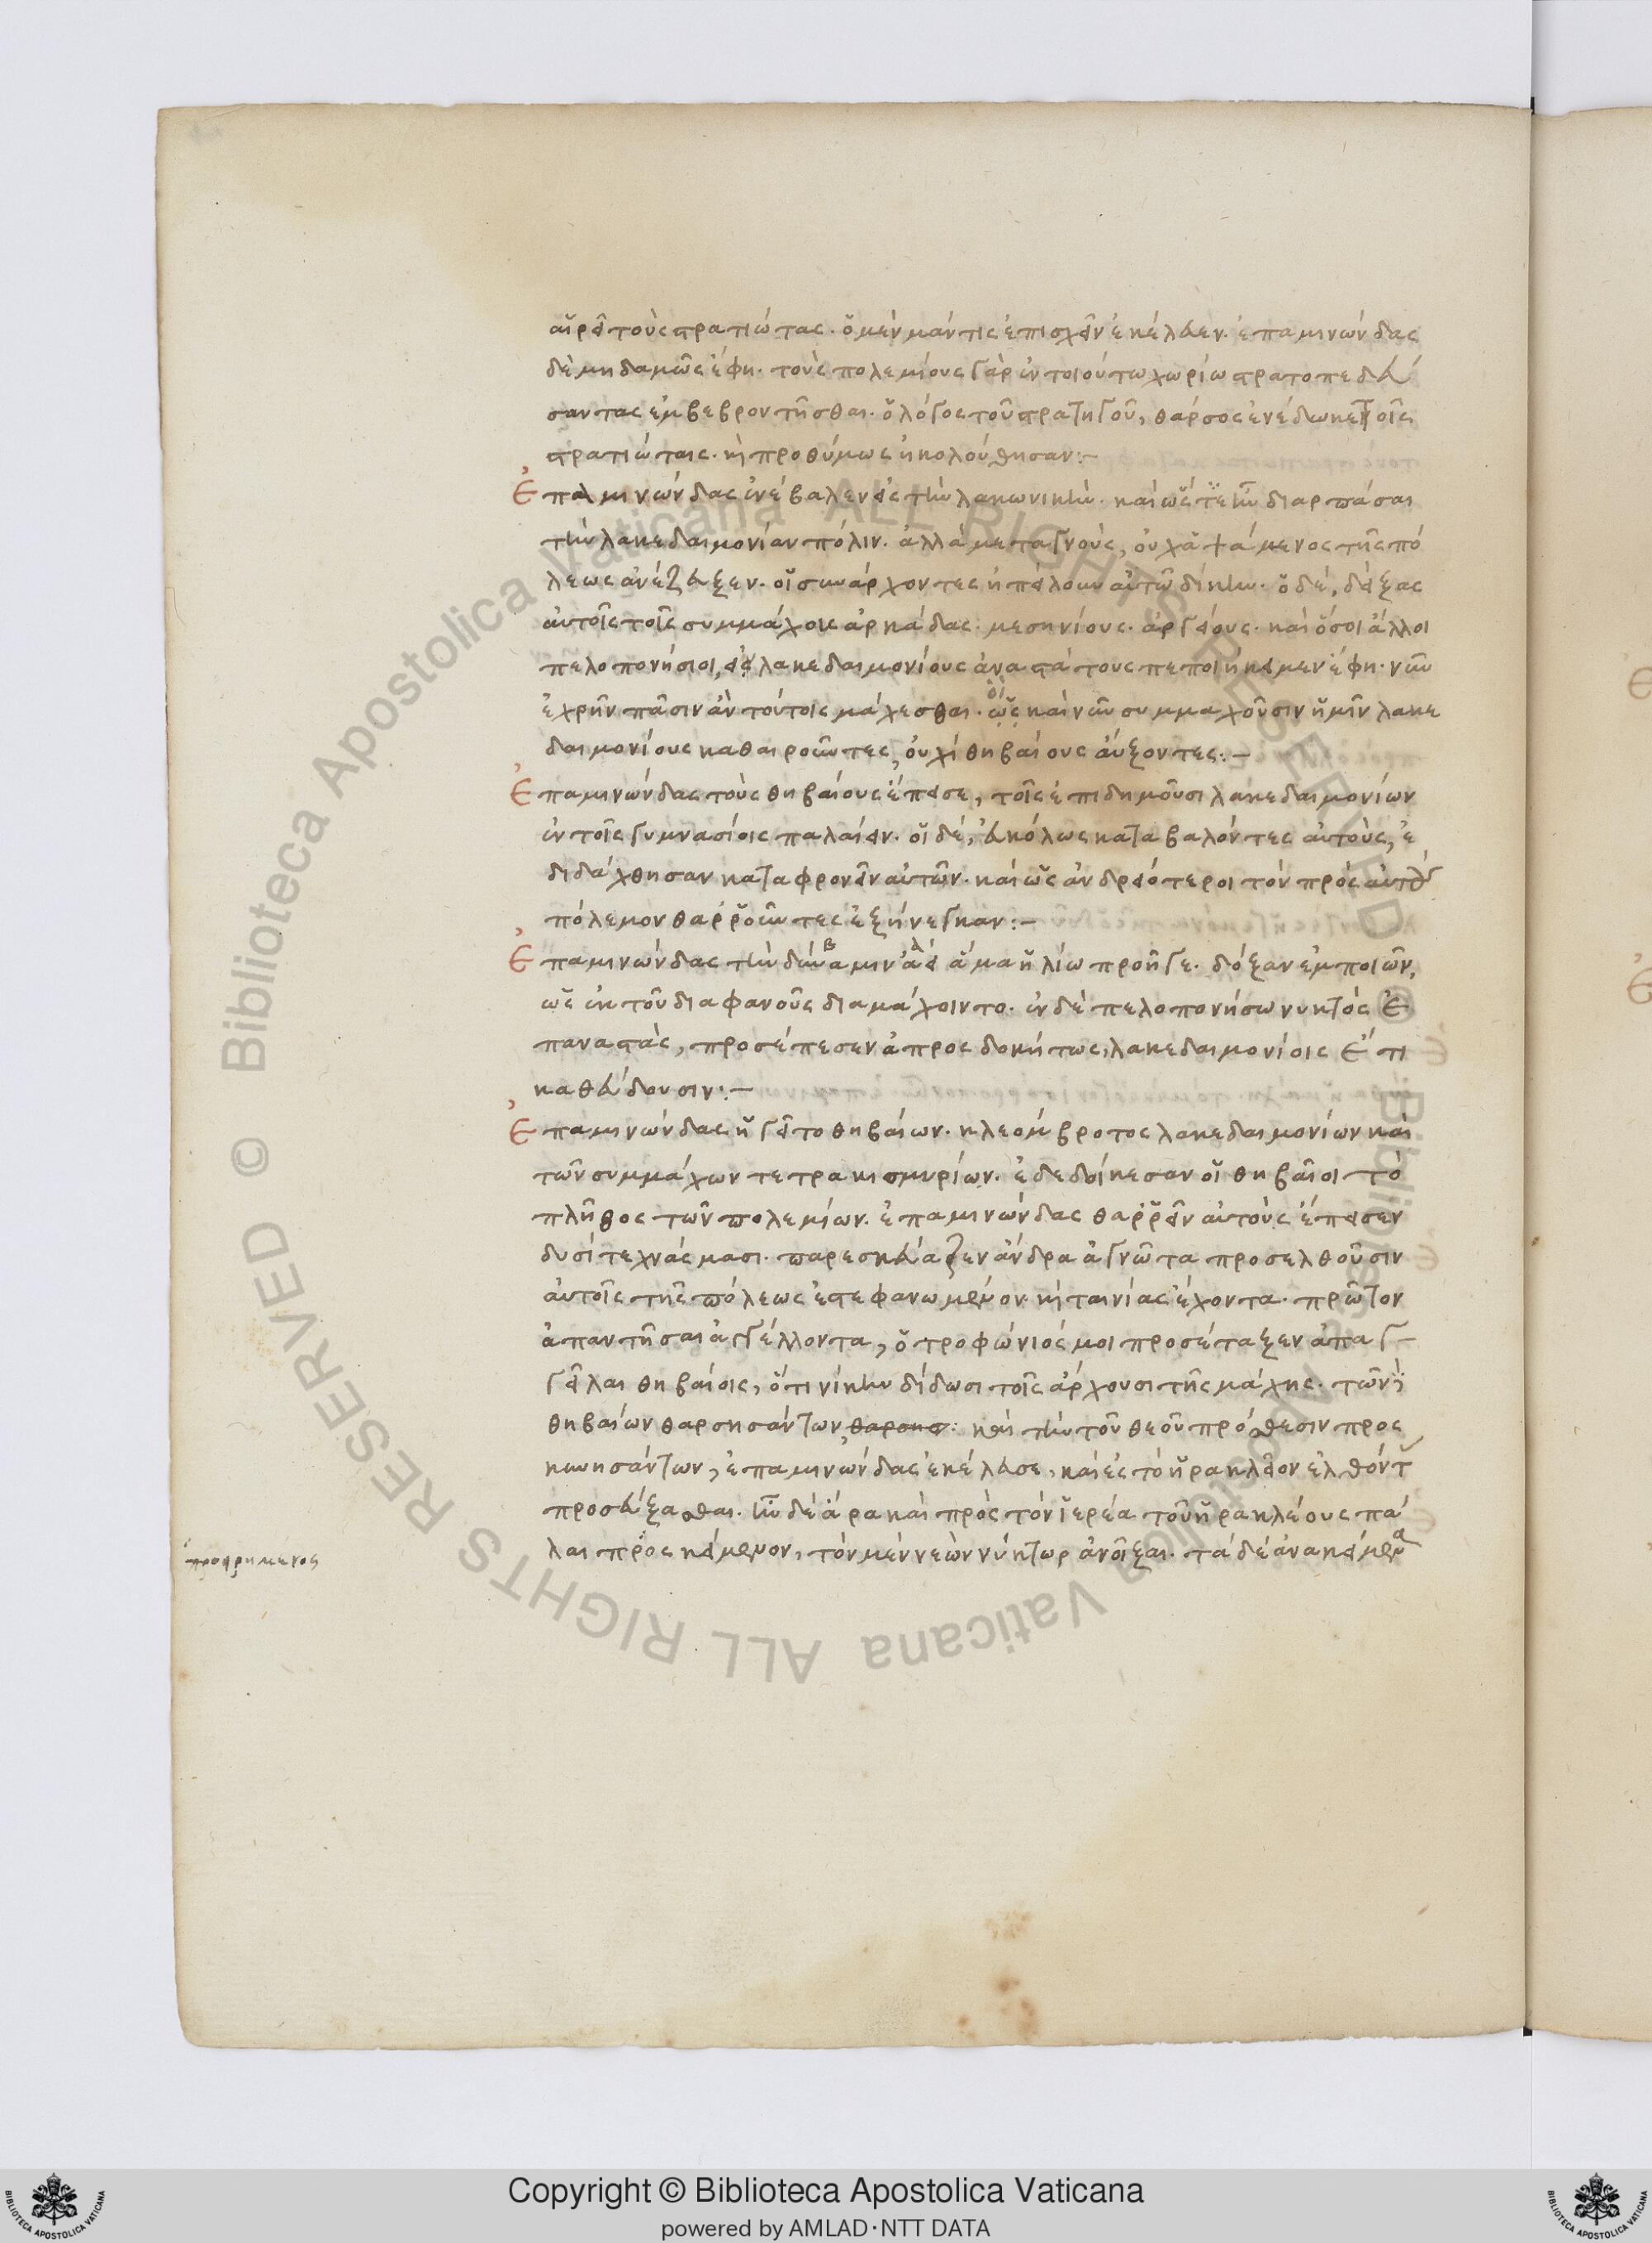 αἴρει τοὺς στρατιώτας. ὁ μὲν μάντις ἐπισχεῖν ἐκέλευεν. ἐπαμινώνδας
δὲ μηδαμῶς ἔφη. τοὺς πολεμίους γὰρ ἐν τοιούτω χωρίω στρατοπεδεύ
σαντας ἐμβεβροντῆσθαι. ὁ λόγος τοῦ στρατηγοῦ, θάρσος ἐνέδωκε τοῖς
στρατιώταις. κὶ προθύμως ἠκολούθησαν:—
Ἐπαμινώνδας ἐνέβαλεν εἰς τὴν λακωνικὴν. καὶ ὥς τε ἦν διαρπάσαι
τὴν λακεδαιμονίαν πόλιν. ἀλλὰ μεταγνοὺς, οὐχ ἁψάμενος τῆς πό
λεως ἀνέζευξεν. οἱ συνάρχοντες ἠπείλουν αὐτῶ δίκην. ὁ δὲ, δείξας
αὐτοῖς τοῖς συμμάχοις ἀρκάδας. μεσηνίους. ἀργείους. καὶ ὅσοι ἄλλοι
πελοπονήσιοι, εἰ λακεδαιμονίους ἀναστάτους πεποιήκειμεν ἔφη. νῦν
ἐχρῆν πᾶσιν ἂν τούτοις μάχεσθαι. οἳ ὡς καὶ νῦν συμμαχοῦσιν ἡμῖν λακε
δαιμονίους καθαιροῦντες, οὐχὶ θηβαίους αὔξοντες:—
Ἐπαμινώνδας τοὺς θηβαίους ἔπεισε, τοῖς ἐπιδημοῦσι λακεδαιμονίων
ἐν τοῖς γυμνασίοις παλαίειν. οἱ δὲ, εὐκόλως καταβαλόντες αὐτοὺς, ἐ
διδάχθησαν καταφρονεῖν αὐτῶν. καὶ ὡς ἀνδρειότεροι τὸν πρὸς αὐτοὺς
πόλεμον θαῤῥοῦντες ἐξήνεγκαν:—
Ἐπαμινώνδας τὴν δύναμιν β ἀεὶ α ἅμα ἡλίω προῆγε. δόξαν ἐμποιῶν,
ὡς ἐκ τοῦ διαφανοῦς διαμάχοιντο. ἐν δὲ πελοπονήσω νυκτὸς ἐ
παναστὰς, προσέπεσεν ἀπροσδοκήτως λακεδαιμονίοις ἔτι
καθεύδουσιν:—
Ἐπαμινώνδας ἡγεῖτο θηβαίων. κλεόμβροτος λακεδαιμονίων καὶ
τῶν συμμάχων τετρακισμυρίων. ἐδεδοίκεσαν οἱ θηβαῖοι τὸ
πλῆθος τῶν πολεμίων. ἐπαμινώνδας θαῤῥεῖν αὐτοὺς ἔπεισεν
δυσὶ τεχνάσμασι. παρεσκεύαζεν ἄνδρα ἀγνῶτα προσελθοῦσιν
αὐτοῖς τῆς πόλεως ἐστεφανωμένον κὶ ταινίας ἔχοντα. πρῶτον
ἀπαντῆσαι ἀγγέλλοντα, ὁ τροφώνιός μοι προσέταξεν ἀπαγ
γεῖλαι θηβαίοις, ὅτι νίκην δίδωσι τοῖς ἄρχουσι τῆς μάχης. τῶν
θηβαίων θαρσησάντων, θαρσησ: καὶ τὴν τοῦ θεοῦ πρόθεσιν προς
κυνησάντων, ἐπαμινώνδας ἐκέλευσε, καὶ ἐς τὸ ἡρακλεῖον ἐλθόντ
προσεύξασθαι. ἦν δὲ ἄρα καὶ πρὸς τὸν ἱερέα τοῦ ἡρακλέους πά
λαι προςκείμενον, τὸν μὲν νεὼν νύκτωρ ἀνοῖξαι. τὰ δὲ ἀνακείμενα
προειρημενος
Copyright © Biblioteca Apostolica Vaticana
powered by AMLAD·NTT DATA